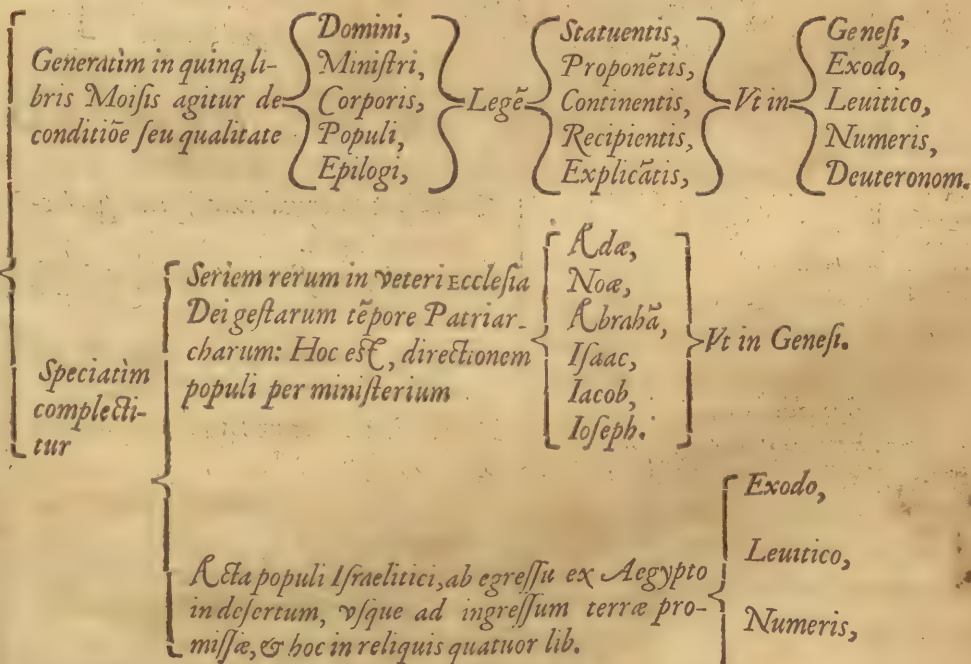 Generatìm in quinq; li-
bris Moisis agitur de
conditiõe ſeu qualitate
Domini,
Miniſtri,
Corporis,
Populi,
Epilogi,
Legẽ
Statuentis,
Proponẽtis,
Continentis,
Recipientis,
Explicãtis,
Vt in
Geneſi,
Exodo,
Leuitico,
Numeris,
Deuteronom.
Speciatìm
complecti-
tur
Seriem rerum in veteri Eccleſia
Dei geſtarum tẽpore Patriar-
charum: Hoc est, directionem
populi per miniſterium
Adæ,
Noæ,
Abrahã,
Iſaac,
Iacob,
Ioſeph.
Vt in Geneſi.
Acta populi Iſraelitici, ab egreſſu ex Aegypto
in deſertum, vſque ad ingreſſum terræ pro-
miſſæ, & hoc in reliquis quatuor lib.
Exodo,
Leuitico,
Numeris,